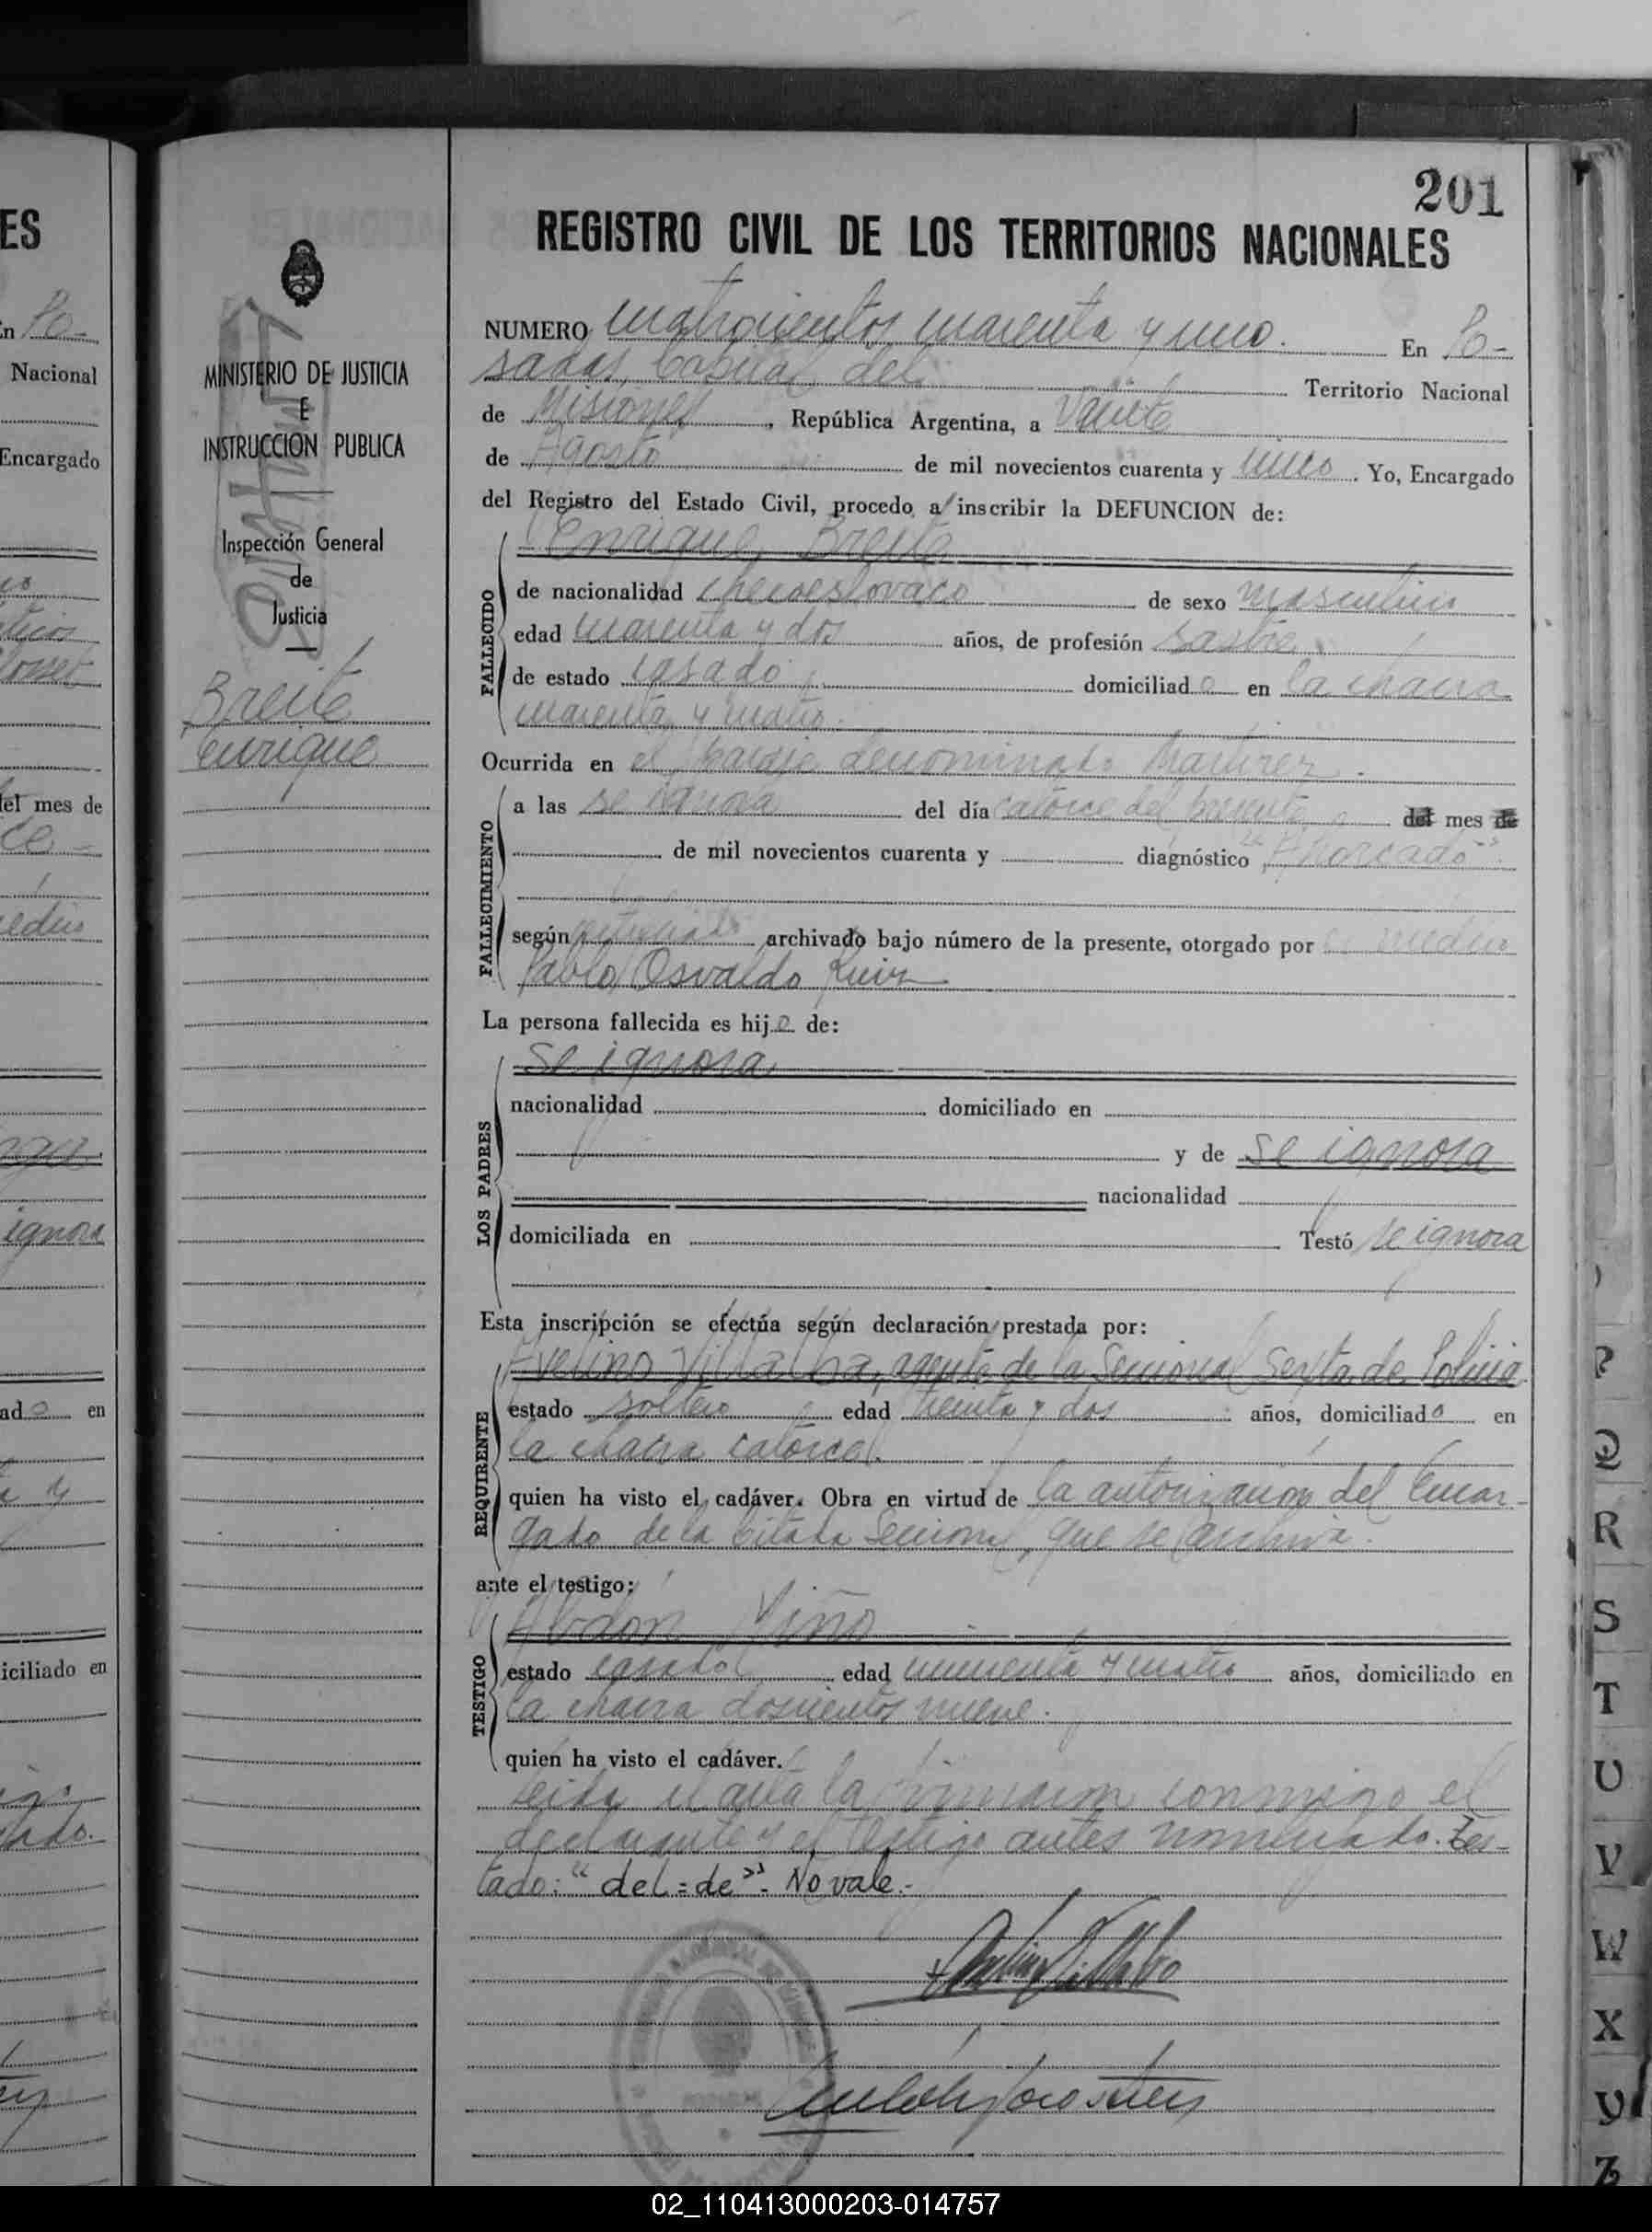 201
REGISTRO CIVIL DE LOS TERRITORIOS NACIONALES
NUMERO cuatrocientos cuarenta y uno. En Po-
sadas, Capital del Territorio Nacional
de Misiones, República Argentina, a Veinte
de Agosto de mil novecientos cuarenta y uno. Yo, Encargado
del Registro del Estado Civil, procedo a inscribir la DEFUNCION de:
Enrique Breite
FALLECIDO
de nacionalidad checoeslovaco de sexo masculino
edad cuarenta y dos años, de profesión sastre
de estado casado domiciliado en la chacra
cuarenta y cuatro.
Ocurrida en el denominado Martirez.
FALLECIMIENTO
a las se ignora del día catorce del presente del mes de
de mil novecientos cuarenta y diagnóstico "Ahorcado".
según archivado bajo número de la presente, otorgado por el medico
Pablo Osvaldo Ruiz
La persona fallecida es hijo de:
LOS PADRES
se ignora
nacionalidad domiciliado en
y de se ignora
nacionalidad
domiciliada en Testó se ignora
Esta inscripción se efectúa según declaración prestada por:
REQUIRENTE
Avelino Villalba, agente de la Seccional Sexta de Policia
estado soltero edad treinta y dos años, domiciliado en
la chacra catorce.
quien ha visto el cadáver. Obra en virtud de la autorización del Encar-
gado de la citada Seccional, que se archiva.
ante el testigo:
TESTIGO
Abdon Miño
estado casado edad cincuenta y cuatro años, domiciliado en
la chacra doscientos nueve.
quien ha visto el cadáver.
Leida el acta la firmaron conmigo el
declarante y el testigo antes nombrado. Tes-
tado: "del=de". No vale.-
MINISTERIO DE JUSTICIA
E
INSTRUCCION PUBLICA
Inspección General
de
Justicia
Breite
Enrique
ES
En Po-
Nacional
Encargado
del mes de
ce-
ignora
ado en
iciliado en
P
Q
R
S
T
U
V
W
X
Y
Z
02_110413000203-014757